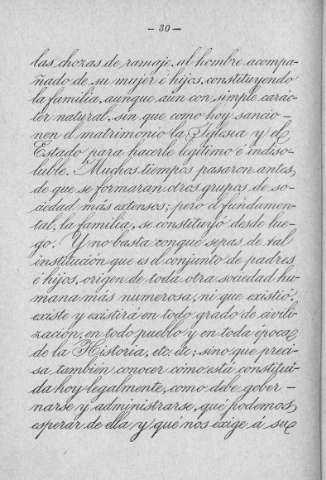 — 30 —
las chozas de ramaje, al hombre acompa-
ñado de su mujer é hijos, constituyendo
la familia, aunque aún con simple carác-
ter natural, sin que como hoy sancio-
nen el matrimonio la Iglesia y el
Estado para hacerle legítimo é indiso-
luble. Muchos tiempos pasaron antes
de que se formaran otros grupos de so-
ciedad más extensos; pero el fundamen-
tal, la familia, se constituyó desde lue-
go. Y no basta con que sepas de tal
institución que es el conjunto de padres
é hijos, origen de toda otra sociedad hu-
mana más numerosa, ni que existió,
existe y existirá en todo grado de civili-
zación, en todo pueblo y en toda época
de la Historia, etc. etc.; sino que preci-
sa también conocer cómo está constitui-
da hoy legalmente, como debe gober-
narse y administrarse, qué podemos
esperar de ella y qué nos exige á su